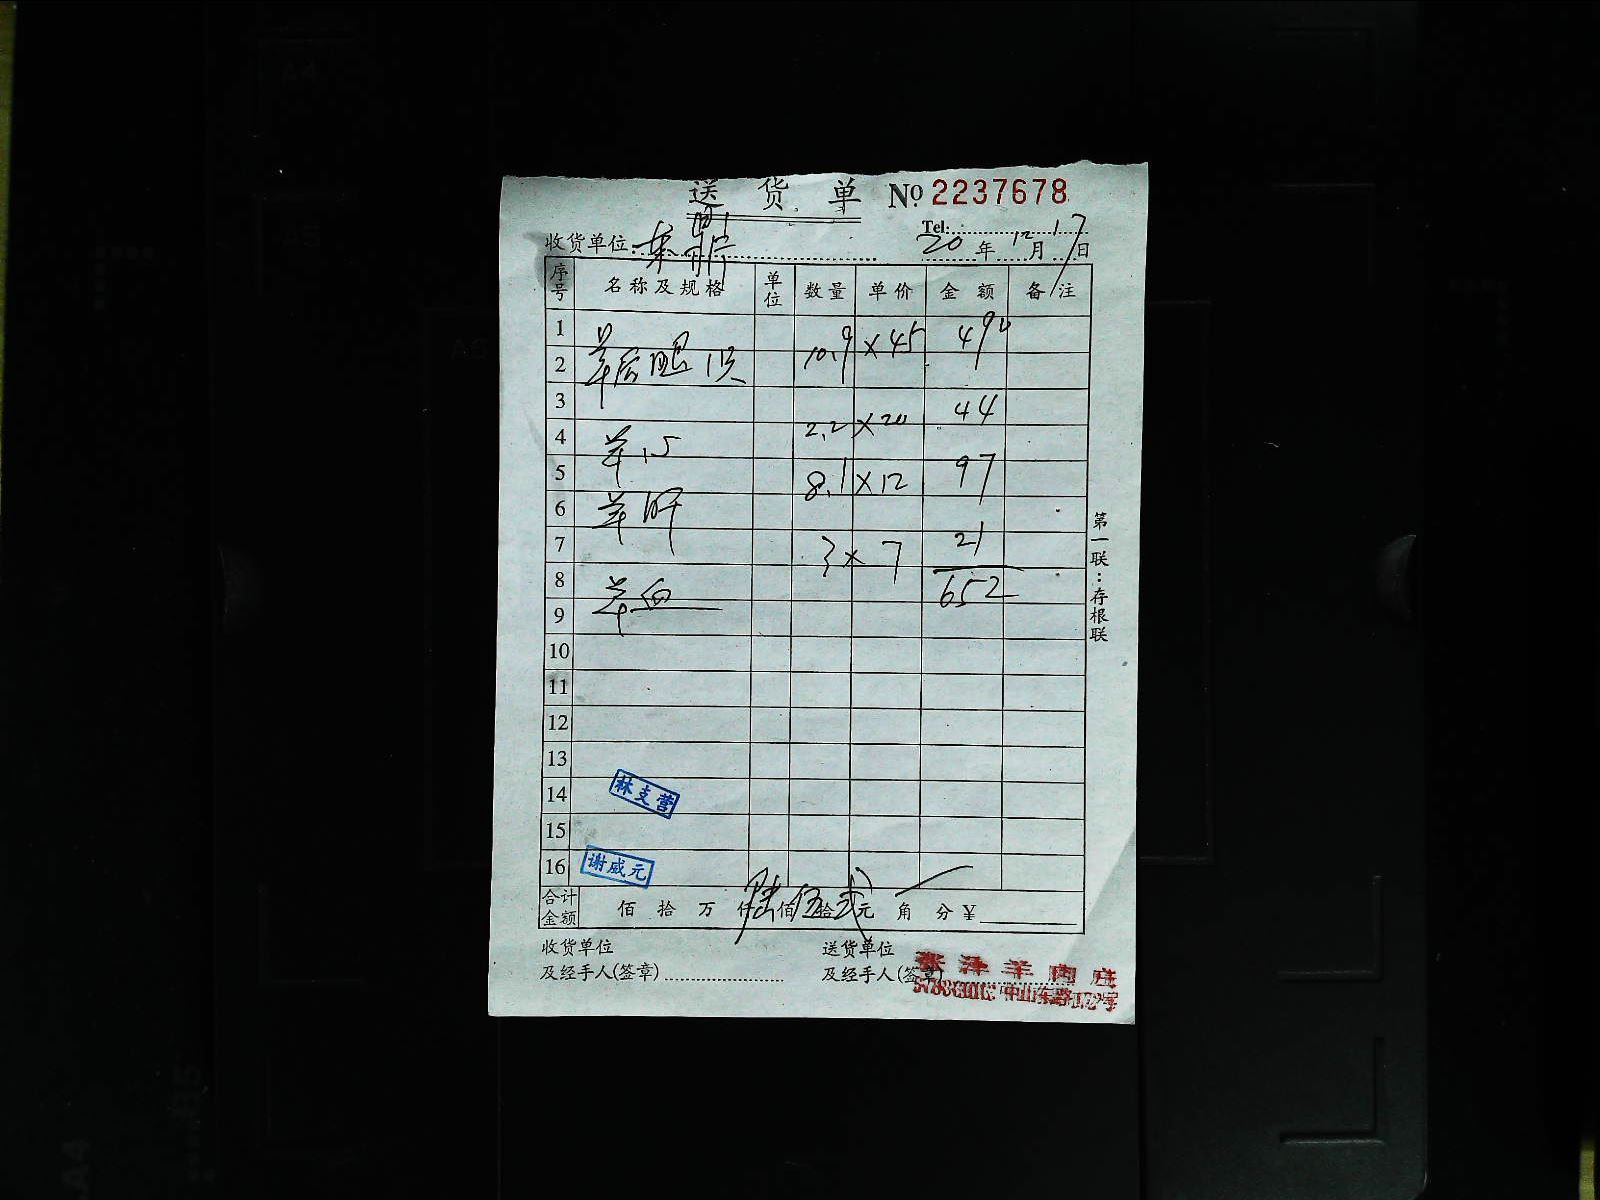 送 货 单 № 2237678
Tel:
收货单位: 东鼎 20 年 12 月 17 日
序号 名称及规格 单位 数量 单价 金额 备注
1
2 羊后腿 10.9 × 45 490
3
4 羊心 2.2 × 20 44
5
6 羊肝 8.1 × 12 97
7
8 羊血 3 × 7 21
652
9
10
11
12
13
14 林支营
15
16 谢威元
合计金额 佰 拾 万 仟 陆 佰 伍 拾 贰 元 角 分 ¥
收货单位 送货单位
及经手人(签章) 及经手人(签章)
津羊肉庄
中山东路
第一联:存根联